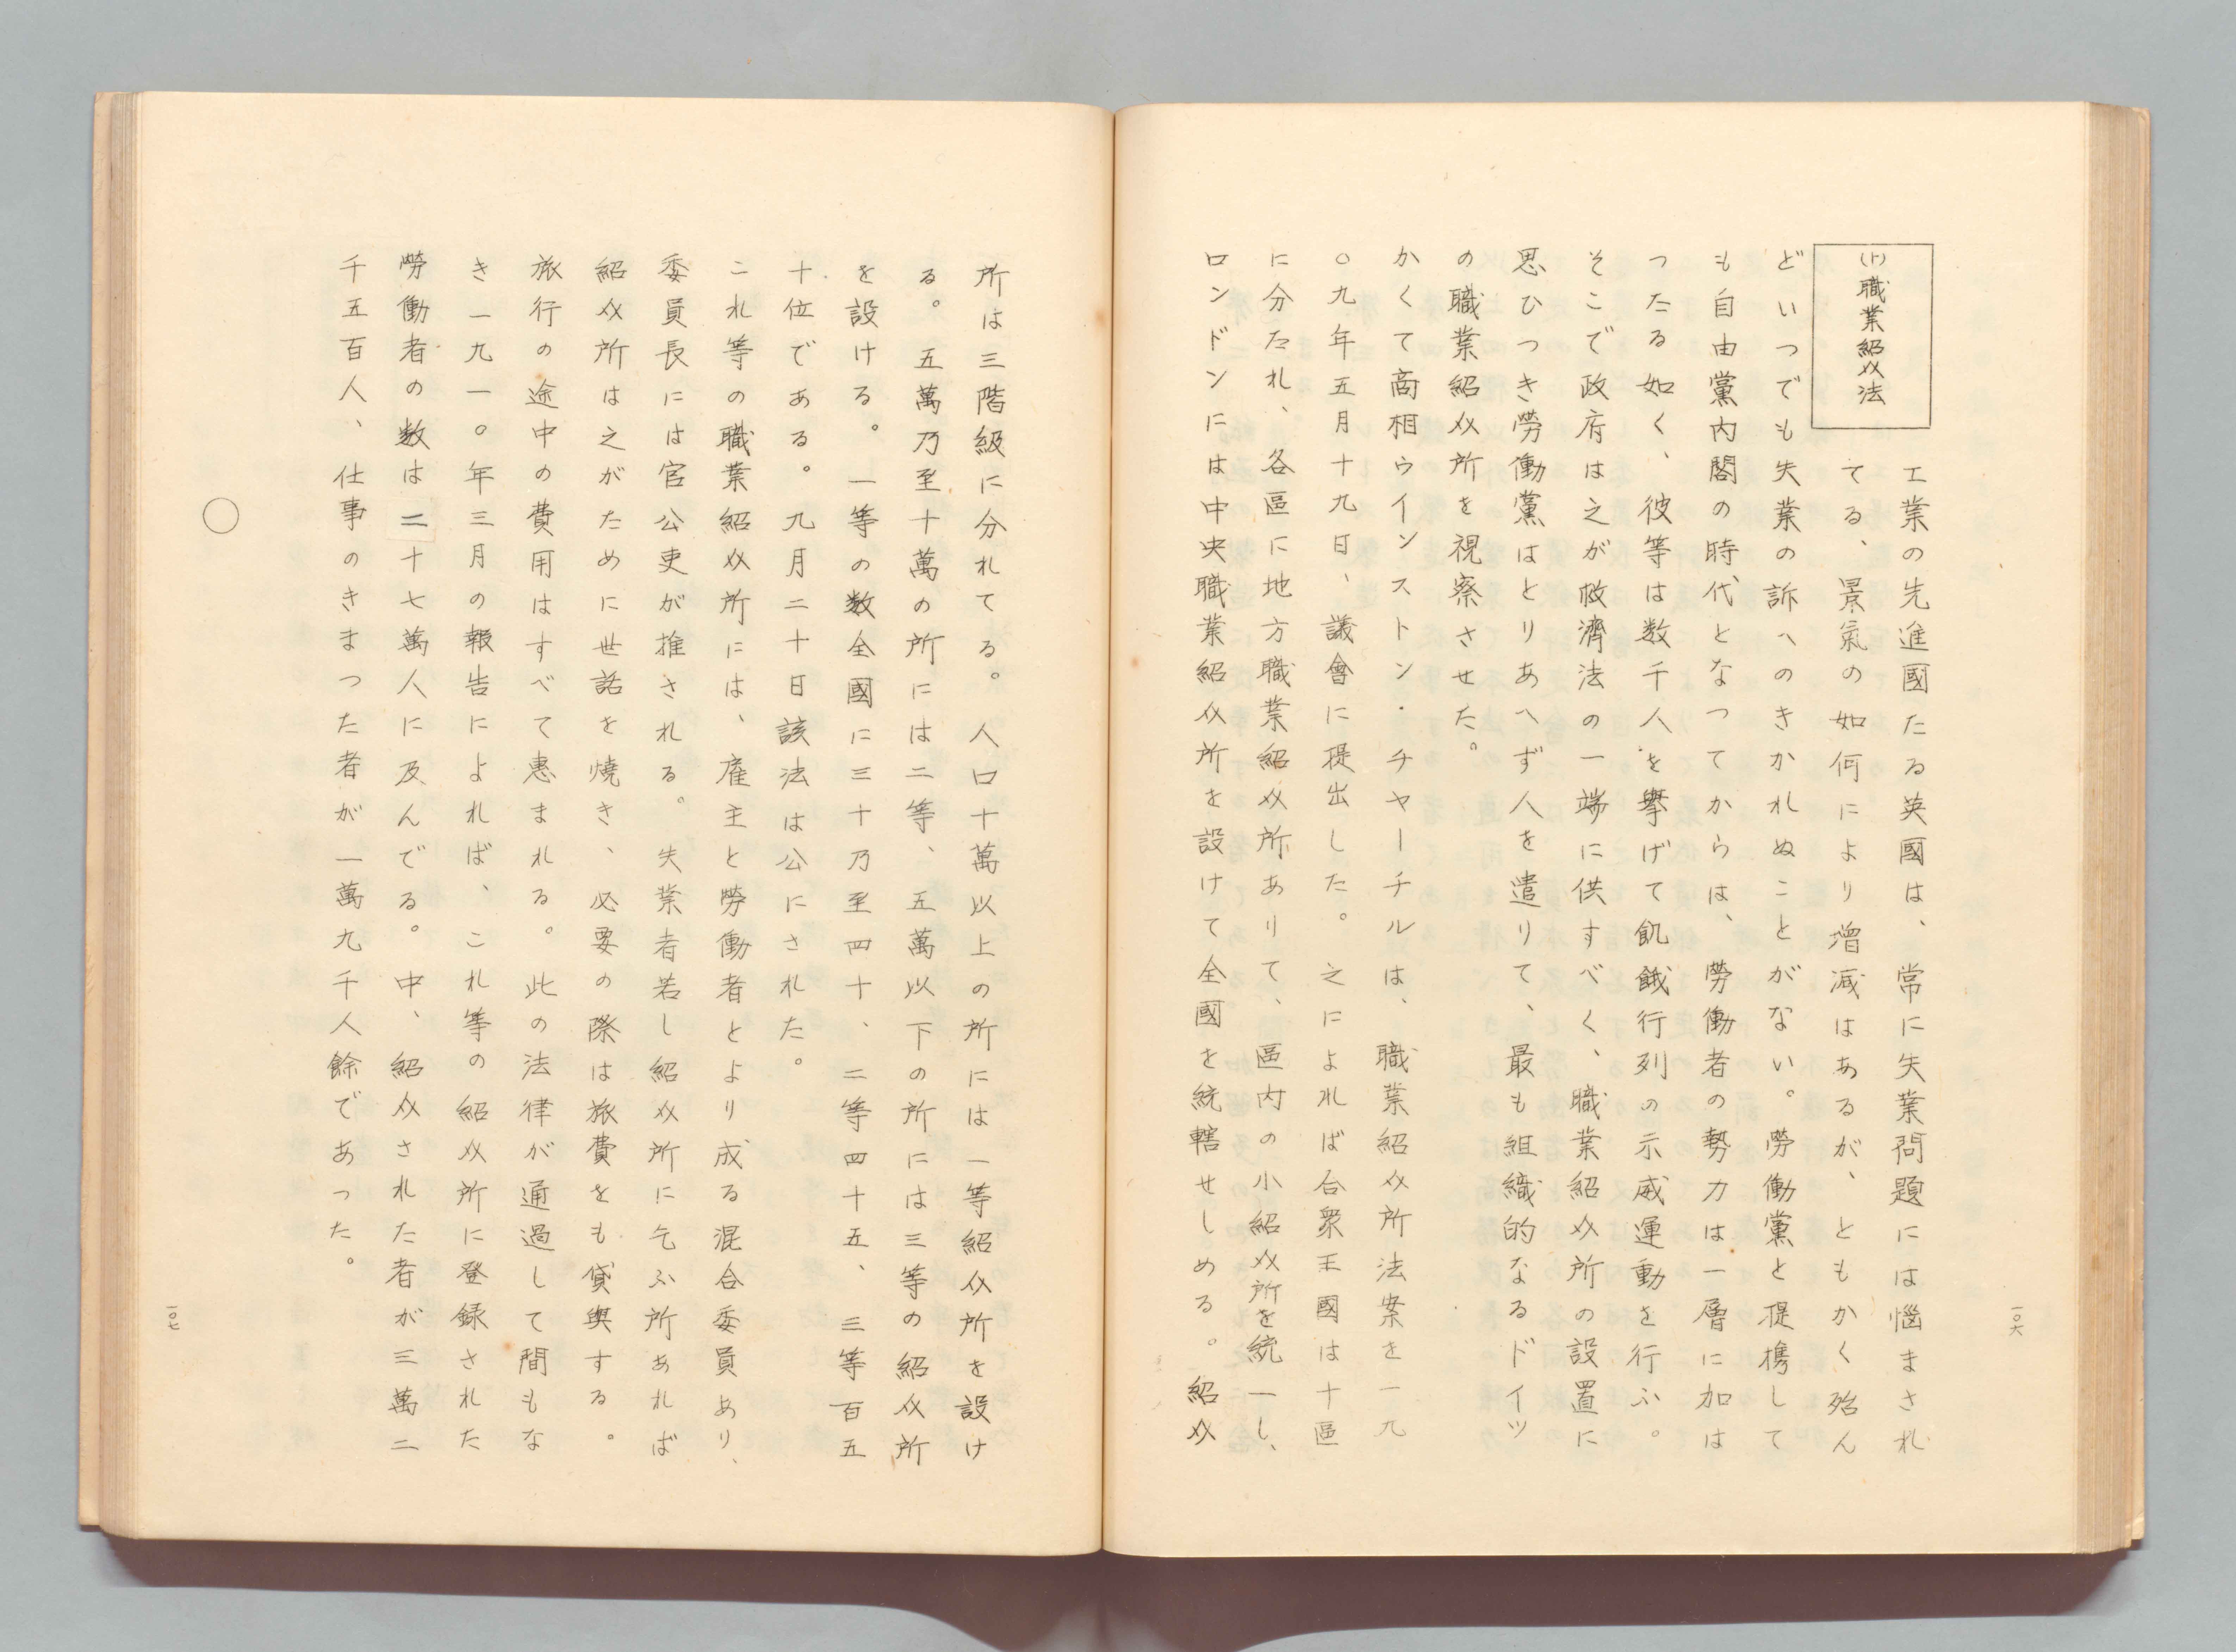 (ト)職業紹介法
工業の先進國たる英國は、常に失業問題には惱まされ
てる、景氣の如何により增減はあるが、ともかく殆ん
どいつでも失業の訴へのきかれぬことがない。勞働黨と提携して
も自由黨内閣の時代となつてからは、勞働者の勢力は一層に加は
つたる如く、彼等は数千人を擧げて飢餓行列の示威運動を行ふ。
そこで政府は之が救濟法の一端に供すべく、職業紹介所の設置に
思ひつき勞働黨はとりあへず人を遣りて、最も組織的なるドイツ
の職業紹介所を視察させた。
かくて商相ウインストン・チヤーチルは、職業紹介所法案を一九
〇九年五月十九日、議會に提出した。之によれば合衆王國は十區
に分たれ、各區に地方職業紹介所ありて、區内の小紹介所を統一し、
ロンドンには中央職業紹介所を設けて全國を統轄せしめる。紹介
一〇六
所は三階級に分れてる。人口十萬以上の所には一等紹介所を設け
る。五萬乃至十萬の所には二等、五萬以下の所には三等の紹介所
を設ける。一等の数全國に三十乃至四十、二等四十五、三等百五
十位である。九月二十日該法は公にされた。
これ等の職業紹介所には、雇主と勞働者とより成る混合委員あり、
委員長には官公吏が推される。失業者若し紹介所に乞ふ所あれば
紹介所は之がために世話を燒き、必要の際は旅費をも貸與する。
旅行の途中の費用はすべて惠まれる。此の法律が通過して間もな
き一九一〇年三月の報告によれば、これ等の紹介所に登録された
勞働者の数は二十七萬人に及んでる。中、紹介された者が三萬二
千五百人、仕事のきまつた者が一萬九千人餘であった。
一〇七